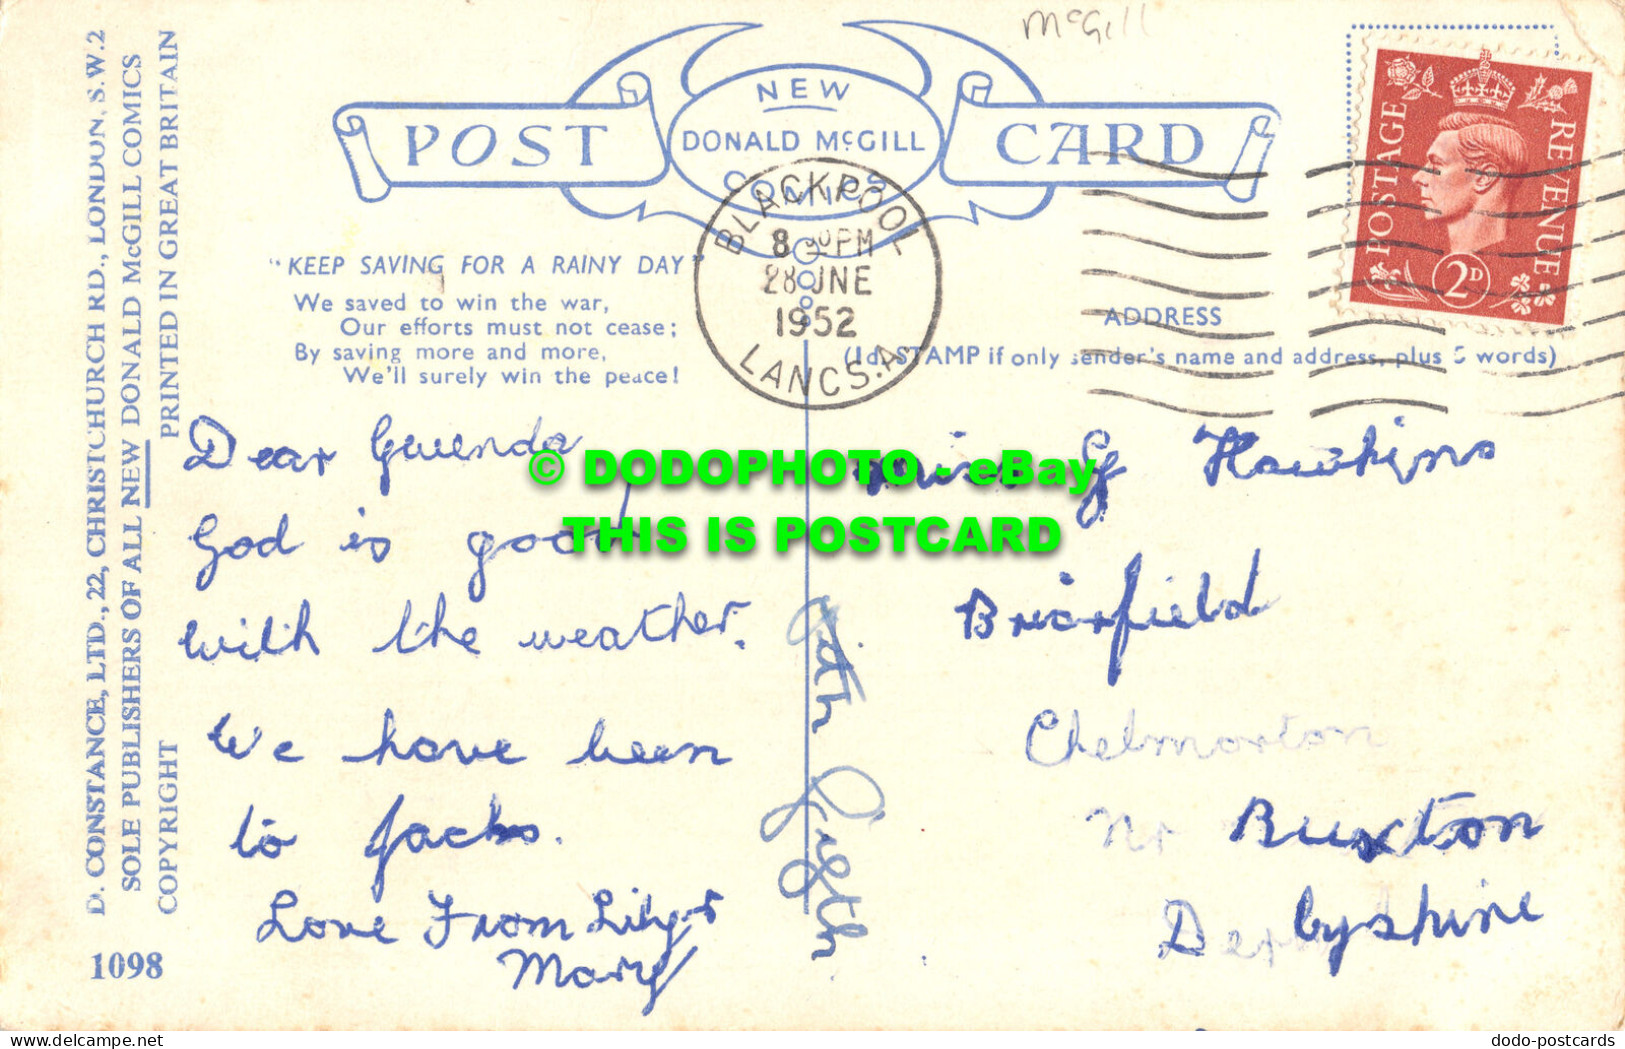 McGill
POST CARD
NEW
DONALD McGILL
COMICS
POSTAGE REVENUE
2D
BLACKPOOL
8 30PM
28 JNE
1952
LANCS. A.
"KEEP SAVING FOR A RAINY DAY"
We saved to win the war,
Our efforts must not cease;
By saving more and more,
We'll surely win the peace!
ADDRESS
(1d. STAMP if only sender's name and address, plus 5 words)
D. CONSTANCE, LTD., 22, CHRISTCHURCH RD., LONDON, S.W.2
SOLE PUBLISHERS OF ALL NEW DONALD McGILL COMICS
COPYRIGHT PRINTED IN GREAT BRITAIN
1098
Dear Gwenda
God is good
with the weather.
We have been
to Jacks.
Love From Lily &
Mary
Miss G Hawkins
Briarfield
Chelmorton
Nr Buxton
Derbyshire
© DODOPHOTO - eBay
THIS IS POSTCARD
https://www.delcampe.net
dodo-postcards